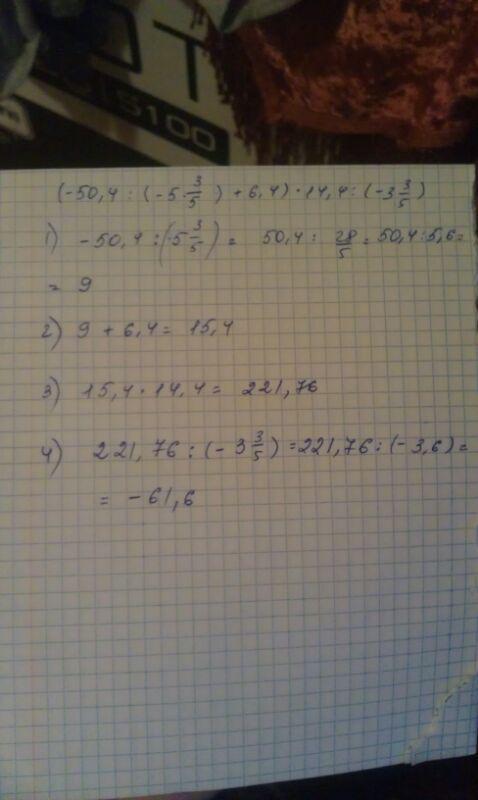 OT
S100
(-50,4 : (-5 3/5) + 6,4) · 14,4 : (-3 3/5)
1) -50,4 : (-5 3/5) = 50,4 : 28/5 = 50,4 : 5,6 =
= 9
2) 9 + 6,4 = 15,4
3) 15,4 · 14,4 = 221,76
4) 221,76 : (-3 3/5) = 221,76 : (-3,6) =
= -61,6